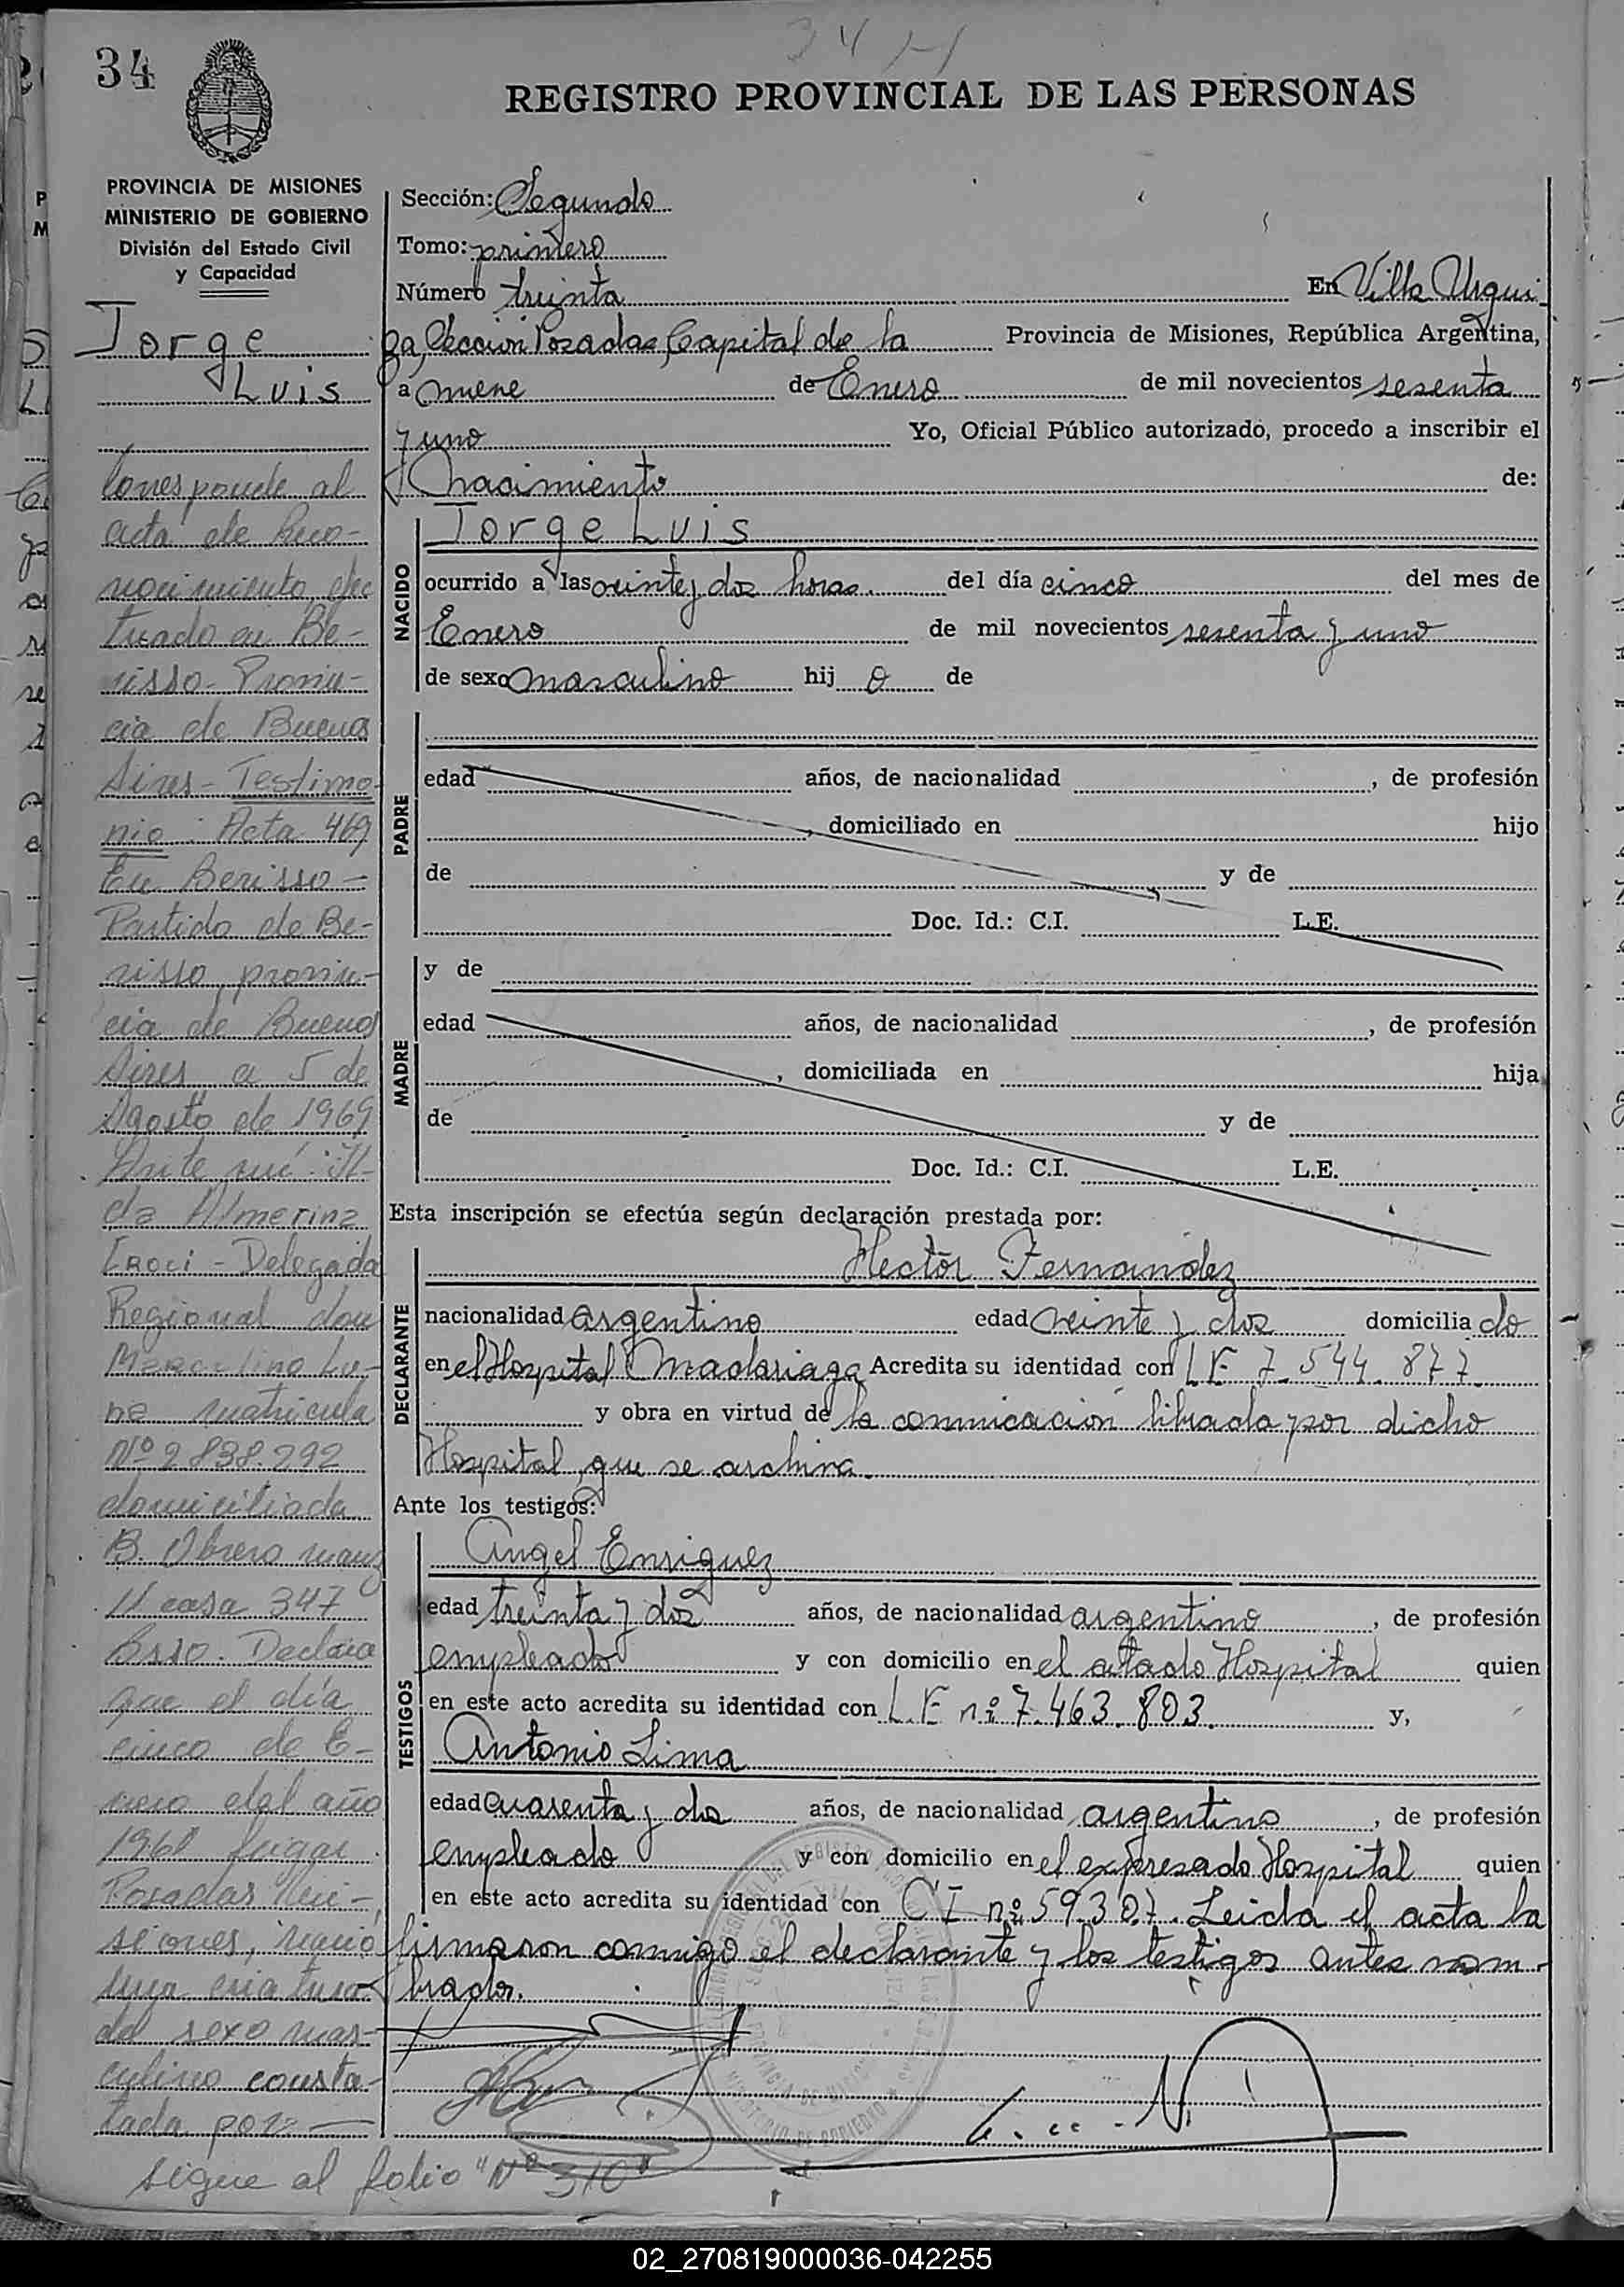 34
34 H
REGISTRO PROVINCIAL DE LAS PERSONAS
PROVINCIA DE MISIONES
MINISTERIO DE GOBIERNO
División del Estado Civil
y Capacidad
Jorge
Luis
Corresponde al
acta de Reco-
nocimiento efec
tuado en Be-
risso - Provin-
cia de Buenos
Aires - Testimo-
nio : Acta 469
En Berisso -
Partido de Be-
risso, provin-
cia de Buenos
Aires a 5 de
Agosto de 1969
Ante mí: Il-
da Almerina
Croci - Delegada
Regional don
Marculino Lu-
na matricula
Nº 2838.292
domiciliada
B. Obrero manz
11 casa 347
Bsso. Declara
que el día
cinco de E-
nero del año
1961 lugar
Posadas Mi-
siones, nació
una criatura
del sexo mas-
culino consta-
tada por -
sigue al folio "Nº 310"
Sección: Segunda
Tomo: primero
Número treinta En Villa Urqui-
za, Sección Posadas, Capital de la Provincia de Misiones, República Argentina,
a nueve de Enero de mil novecientos sesenta
y uno Yo, Oficial Público autorizado, procedo a inscribir el
nacimiento de:
NACIDO
Jorge Luis
ocurrido a las veinte y dos horas. del día cinco del mes de
Enero de mil novecientos sesenta y uno
de sexo masculino hij o de
PADRE
edad años, de nacionalidad , de profesión
, domiciliado en hijo
de y de
Doc. Id.: C.I. L.E.
MADRE
y de
edad años, de nacionalidad , de profesión
, domiciliada en hija
de y de
Doc. Id.: C.I. L.E.
Esta inscripción se efectúa según declaración prestada por:
DECLARANTE
Hector Fernandez
nacionalidad argentino edad veinte y dos domicilia do
en el Hospital Madariaga Acredita su identidad con L E 7.544.877
y obra en virtud de la comunicacion librada por dicho
Hospital, que se archiva.
Ante los testigos:
TESTIGOS
Angel Enriquez
edad treinta y dos años, de nacionalidad argentino , de profesión
empleado y con domicilio en el citado Hospital quien
en este acto acredita su identidad con L.E nº 7.463.803. y,
Antonio Lima
edad cuarenta y dos años, de nacionalidad argentino , de profesión
empleado y con domicilio en el expresado Hospital quien
en este acto acredita su identidad con C I nº 59307. Leida el acta la
firmaron conmigo el declarante y los testigos antes nom-
brados.
02_270819000036-042255